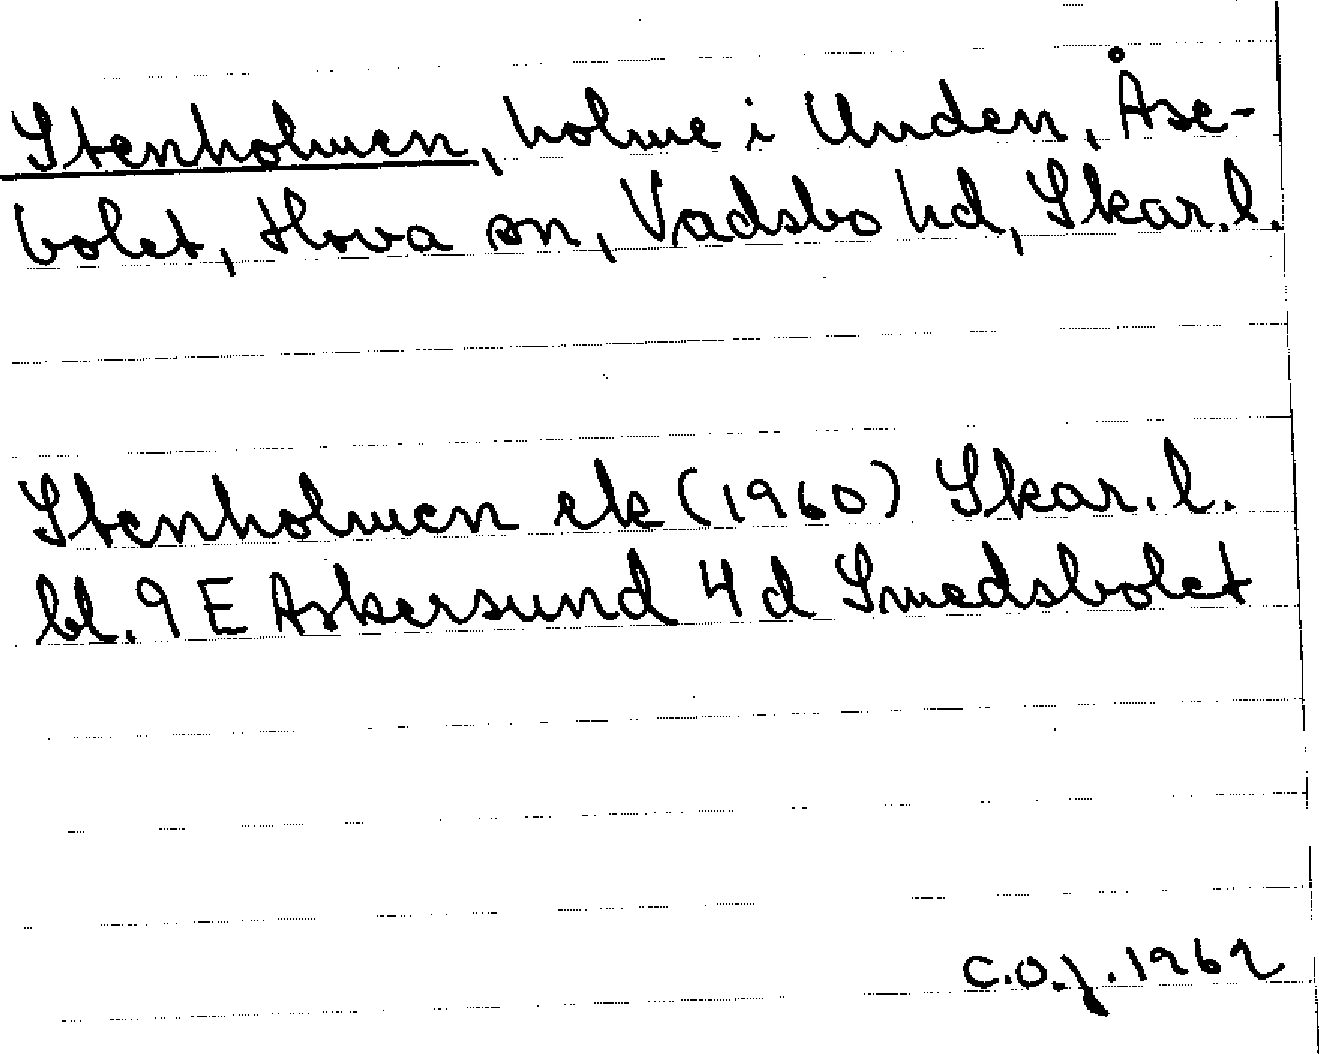 Stenholmen, holme i Unden, Åse-
bolet, Hova sn, Vadsbo hd, Skar.l.
Stenholmen ek (1960) Skar.l.
bl. 9 E Askersund 4 d Smedsbolet
C.O.J. 1962